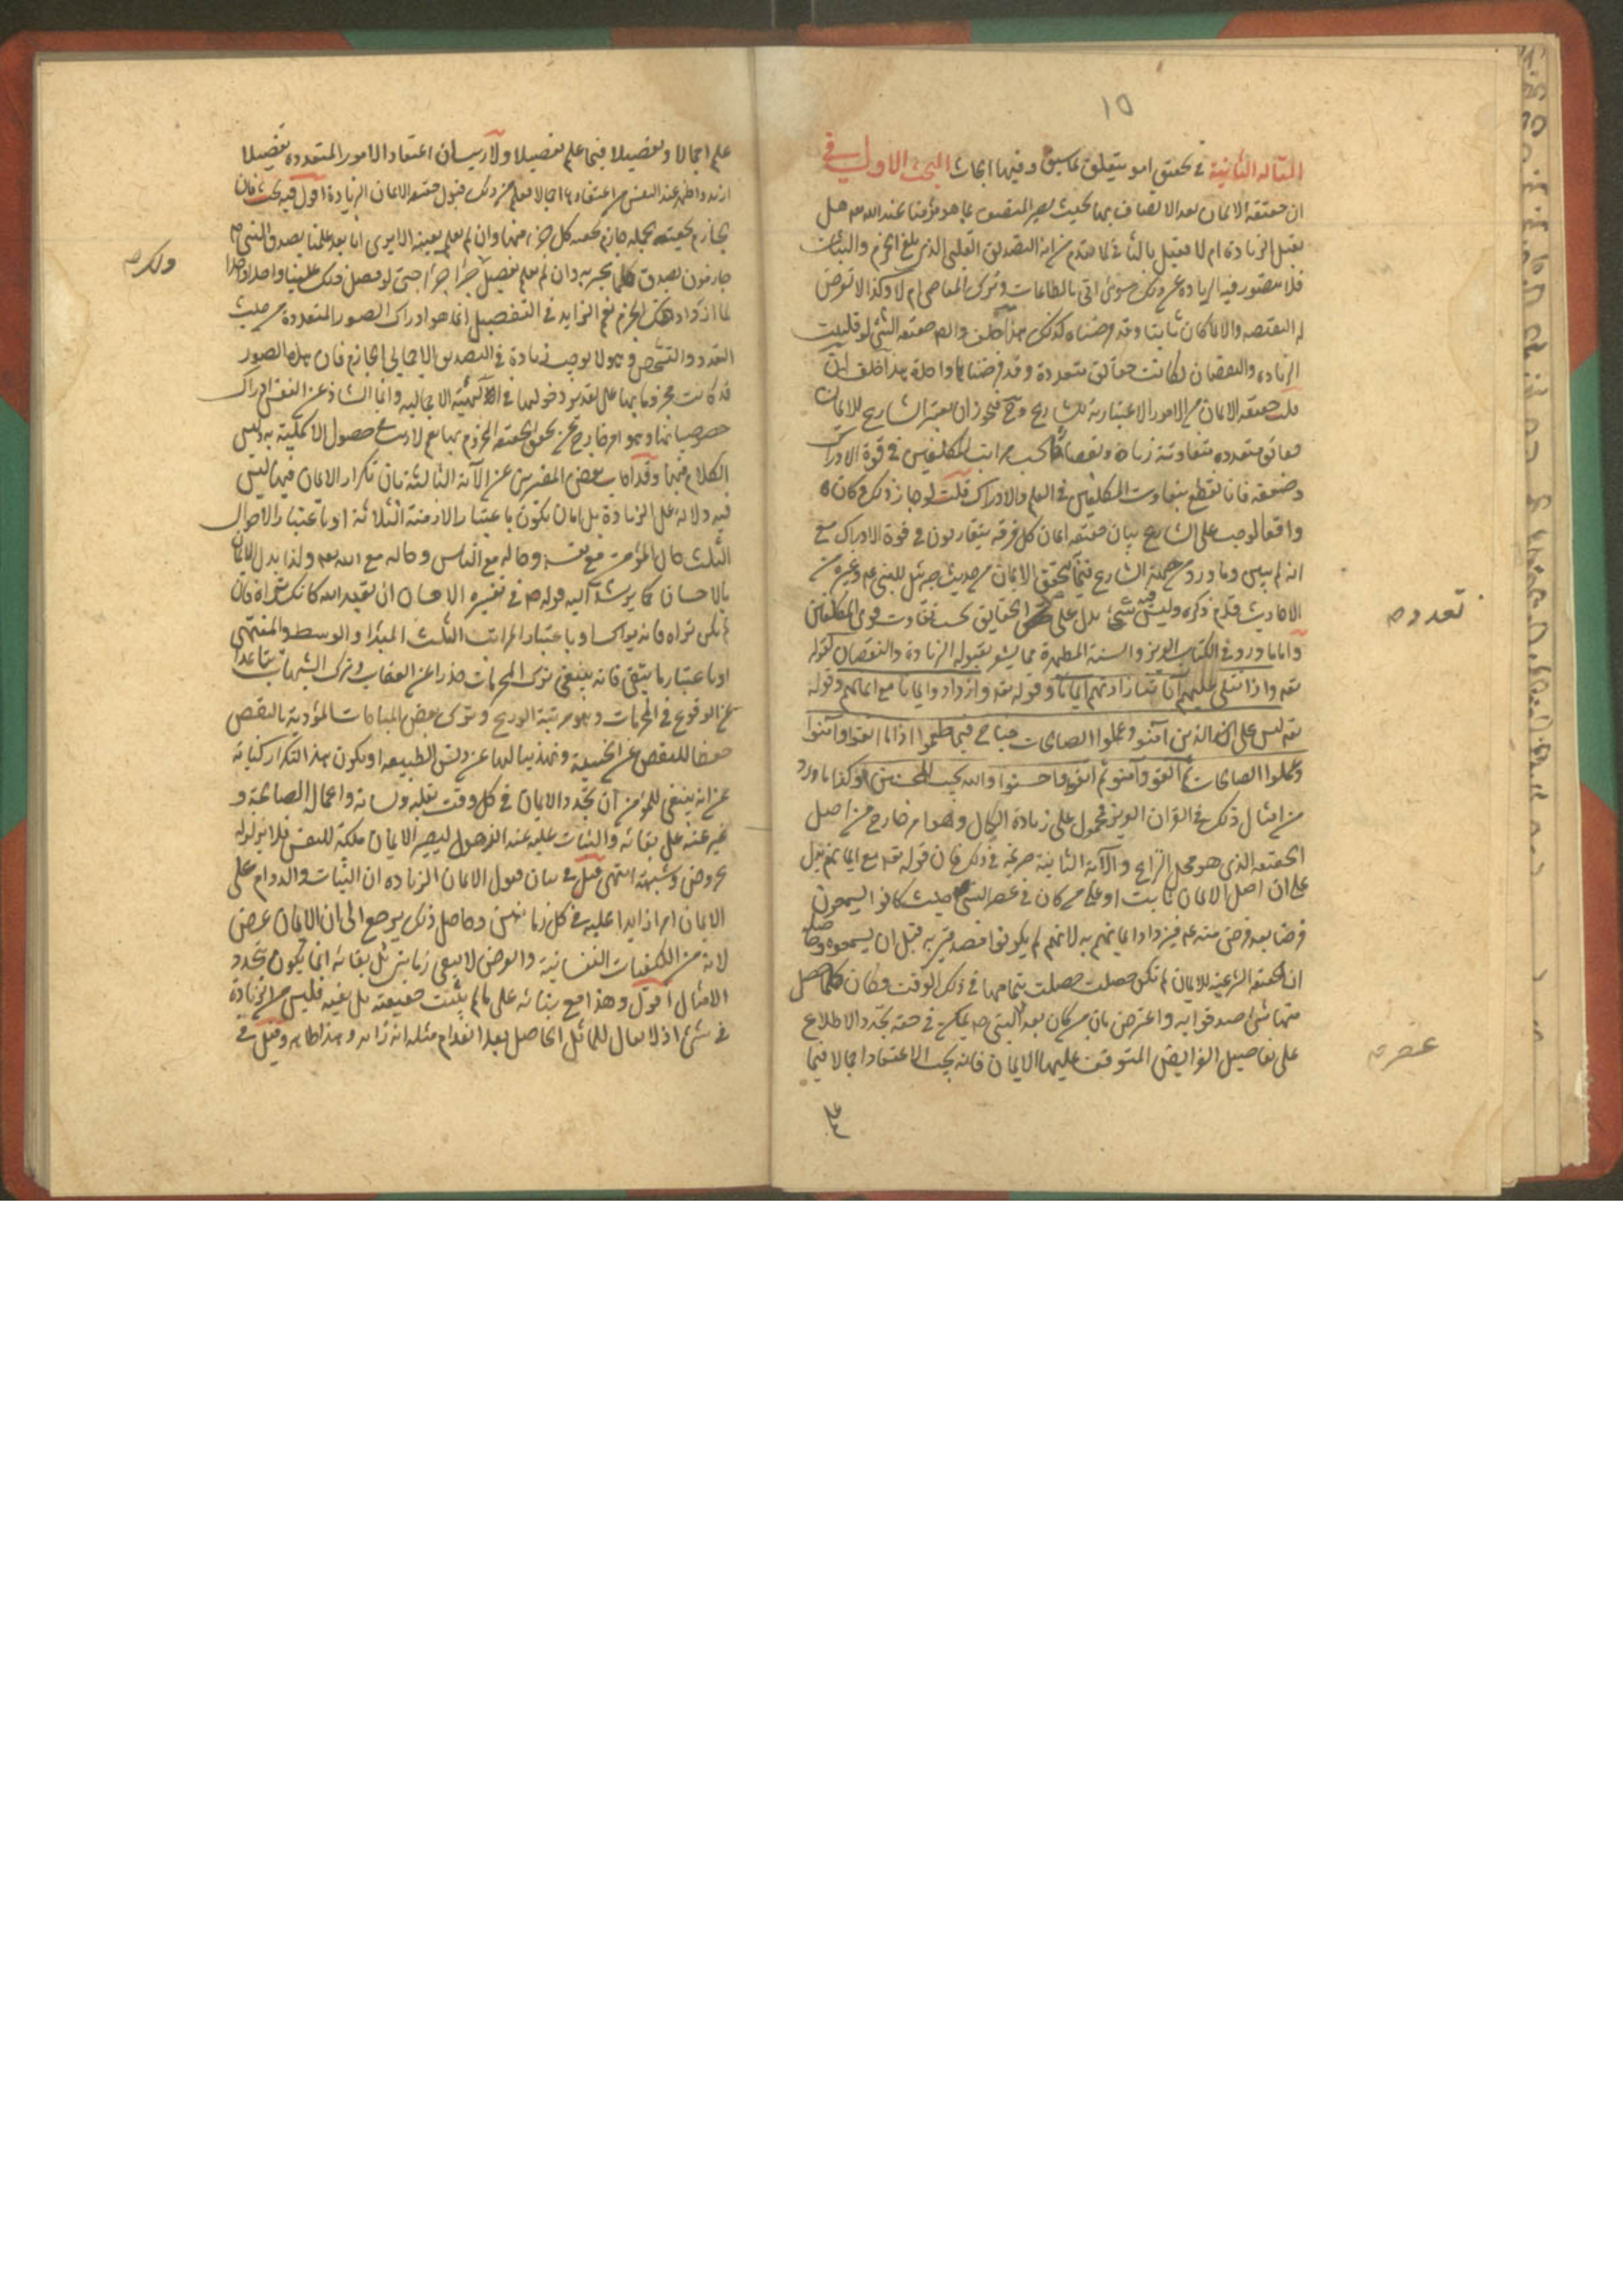 ١٥
المقالة الثانية في تحقيق امور يتعلق بما سبق وفيها ابحاث البحث الاول في
ان حقيقة الايمان بعد الاتصاف بها بحيث يصير المتصف بها هو مؤمنا عند الله تعه هل
تقبل الزيادة ام لا فقيل بالثاني لما تقدم من انه التصديق القلبي الذي بلغ الجزم والثبات
فلا تتصور فيه الزيادة عن ذلك سواء اتى بالطاعات وترك المعاصي ام لا وكذا لا تعرض
له النقيصه والا لما كان ثابتا وقد فرضناه كذلك هذا خلف وايضا حقيقة الشئ لو قبلت
الزيادة والنقصان لكانت حقائق متعددة وقد فرضناها واحدة هذا خلف ان
قلت حقيقة الايمان من الامور الاعتبارية للشارع وح فيجوز ان يعتبر الشارع للايمان
حقائق متعدده متفاوتة زيادة ونقصانا بحسب مراتب المكلفين في قوة الادراك
وضعفه فانا نقطع بتفاوت المكلفين في العلم والادراك قلت لو جاز ذلك وكان
واقعا لوجب على الشارع بيان حقيقة ايمان كل فرقه يتقاربون في قوة الادراك مع
انه لم يبين وما ورد من جهة الشارع فيما به يتحقق الايمان من حديث جبرئيل للنبي صم وغيره من
الاحاديث قدم ذكره وليس فيه شئ يدل على تعدد الحقايق بحسب تفاوت قوى المكلفين
تعدد ص
واما ما ورد في الكتاب العزيز والسنة المطهرة مما يشعر بقبوله الزيادة والنقصان كقوله
تعه واذا تتلى عليهم آياته زادتهم ايمانا وقوله تعه وازدادوا ايمانا مع ايمانهم وقوله
تعه ليس على الذين آمنوا وعملوا الصالحات جناح فيما طعموا اذا ما اتقوا وآمنوا
وعملوا الصالحات ثم اتقوا وآمنوا ثم اتقوا واحسنوا والله يحب المحسنين وكذا ما ورد
من امثال ذلك في القران العزيز فمحمول على زيادة الكمال وهو امر خارج من اصل
الحقيقة الذي هو محل النزاع والآية الثانية صريحة في ذلك فان قوله تعه مع ايمانهم يدل
على ان اصل الايمان ثابت او على من كان في عصر النبي ص حيث كانوا يسمعون
فرضا بعد فرض منه عم فيزداد ايمانهم به لانهم لم يكونوا مصدقين به قبل ان يسمعوه وحاصله
ان الحقيقة الشرعية للايمان لم تكن حصلت بتمامها في ذلك الوقت فكان كلما حصل
منها شئ صدقوا به واعترض بان من كان بعد النبي ص يمكن في حقه تجدد الاطلاع
عصر ص
على تفاصيل الفرايض المتوقف عليها الايمان فانه يجب الاعتقاد اجمالا فيما
علم اجمالا وتفصيلا فيما علم تفصيلا ولا ريب ان اعتقاد الامور المتعدده تفصيلا
ازيد واظهر عند النفس من اعتقادها اجمالا فعلم من ذلك قبول حقيقة الايمان الزيادة اقول فيه بحث فان
الجازم بحقيقة الجملة جازم بحقيه كل جزء منها وان لم يعلمه بعينه الا يرى انا بعد علمنا بصدق النبي ص
جازمون بصدق كلما يخبر به وان لم نعلم تفصيل ذلك جزءا جزءا حتى لو فصل ذلك علينا واحدا واحدا
ذلك ص
لما ازداد ذلك الجزم نعم الزايد في التفصيل انما هو ادراك الصور المتعددة من حيث
التعدد والتشخص وهو لا يوجب زيادة في التصديق الاجمالي الجازم فان هذه الصور
قد كانت مجزوما بها على تقدير دخولها في الهيئة الاجمالية وانما الشاذ عن النفس ادراك
خصوصياتها وهو امر خارج عن تحقق الحقيقة المجزوم بها نعم لا ريب في حصول الاكملية به وليس
الكلام فيها وقد اجاب بعض المفسرين عن الآية الثالثة بان تكرار الايمان فيها ليس
فيه دلالة على الزيادة بل اما ان يكون باعتبار الازمنة الثلاثة او باعتبار الاحوال
الثلث حال المؤمن مع نفسه وحاله مع الناس وحاله مع الله تعه ولذا بدل الايمان
بالاحسان كما يرشد اليه قوله ص في تفسيره الاحسان ان تعبد الله كانك تراه فان
لم تكن تراه فانه يراك او باعتبار المراتب الثلث المبدأ والوسط والمنتهى
او باعتبار ما يتقى فانه ينبغي ترك المحرمات حذرا عن العقاب وترك الشبهات تباعدا
عن الوقوع في المحرمات وهو مرتبة الورع وترك بعض المباحات المؤذية بالنقص
حفظا للنفس عن الخسيسة وتهذيبا لها عن دنس الطبيعة او يكون هذا التكرار كناية
عن انه ينبغي للمؤمن ان يجدد الايمان في كل وقت بقلبه ولسانه واعماله الصالحة و
يحرص على بقائه والثبات عليه عند الذهول ليصير الايمان ملكة للنفس فلا يزلزله
عروض شبهة انتهى قيل في بيان قبول الايمان الزيادة ان الثبات والدوام على
الايمان امر زايد عليه في كل زمان وحاصل ذلك يرجع الى ان الايمان عرض
لانه من الكيفيات النفسانية والعرض لا يبقى زمانين بل بقائه انما يكون بتجدد
الامثال اقول وهذا مع بنائه على ما لم يثبت حقيقته بل نفيه فليس من الزيادة
في شئ اذ لا يقال للماثل الحاصل بعد انعدام مثله انه زايد وهذا ظاهر وقيل في